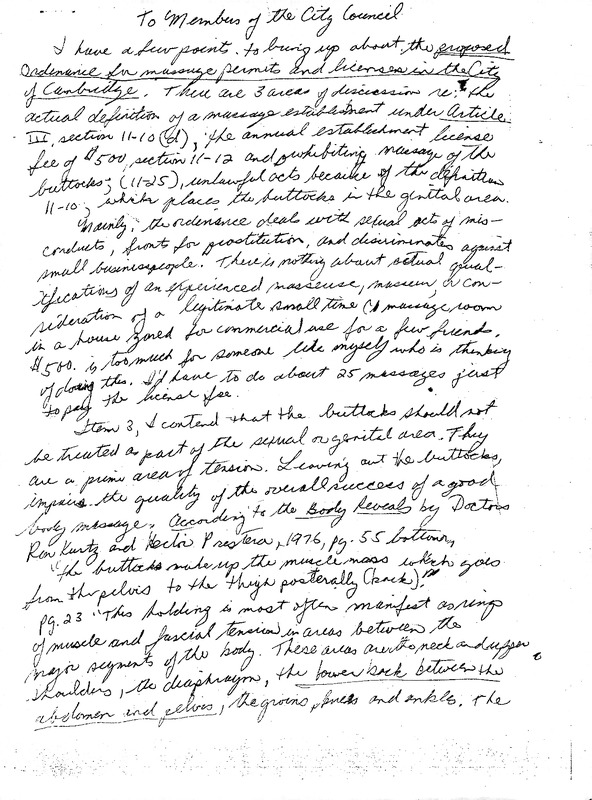 To Members of the City Council
I have a few points to bring up about the proposed
Ordenance for massage permits and licenses in the City
of Cambridge. There are 3 areas of discussion re: the
actual definition of a massage establishment under Article
III, section 11-10 (d), the annual establishment license
fee of $500, section 11-12 and prohibiting massage of the
buttocks; (11-25), unlawful acts because of the definition
11-10, which places the buttocks in the genital area.
Mainly, the ordenance deals with sexual acts of mis-
conducts, fronts for prostitution, and discriminates against
small businesspeople. There is nothing about actual qual-
ifications of an experienced masseuse, masseur, or con-
sideration of a legitimate small time (1) massage room
in a house zoned for commercial use for a few friends.
$500. is too much for someone like myself who is thinking
of doing this. I'd have to do about 25 massages just
to pay the license fee.
Item 3, I contend that the buttocks should not
be treated as part of the sexual or genital area. They
are a prime area of tension. Leaving out the buttocks,
impairs the quality of the overall success of a good
body massage. According to the Body Reveals by Doctors
Ron Kurtz and Hector Prestera, 1976, pg. 55 bottom,
"the buttocks make up the muscle mass which goes
from the pelvis to the thigh posterally (back)."
pg. 23 "This holding is most often manifest as rings
of muscle and fascial tension in areas between the
major segments of the body. These areas are the neck and upper
shoulders, the diaphragm, the lower back between the
abdomen and pelvis, the groins, knees and ankles. The